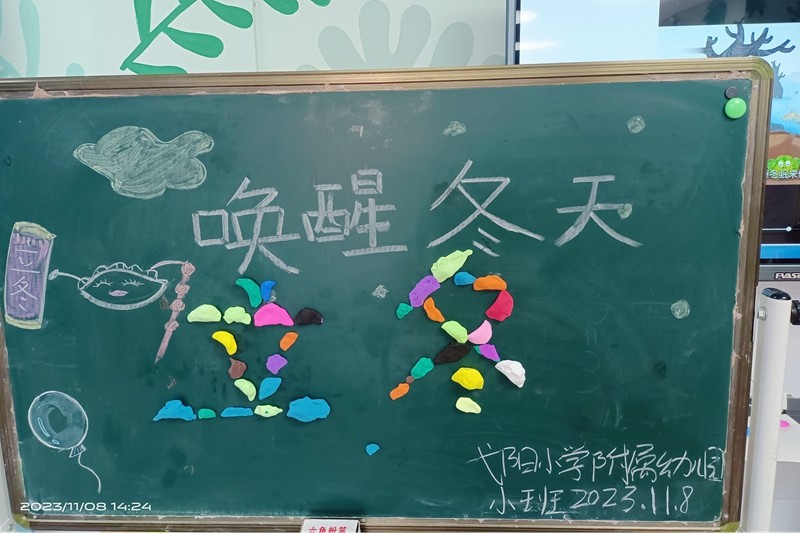 唤醒冬天
立冬
立冬
弋阳小学附属幼儿园
小班2023.11.8
2023/11/08 14:24
六角粉笔